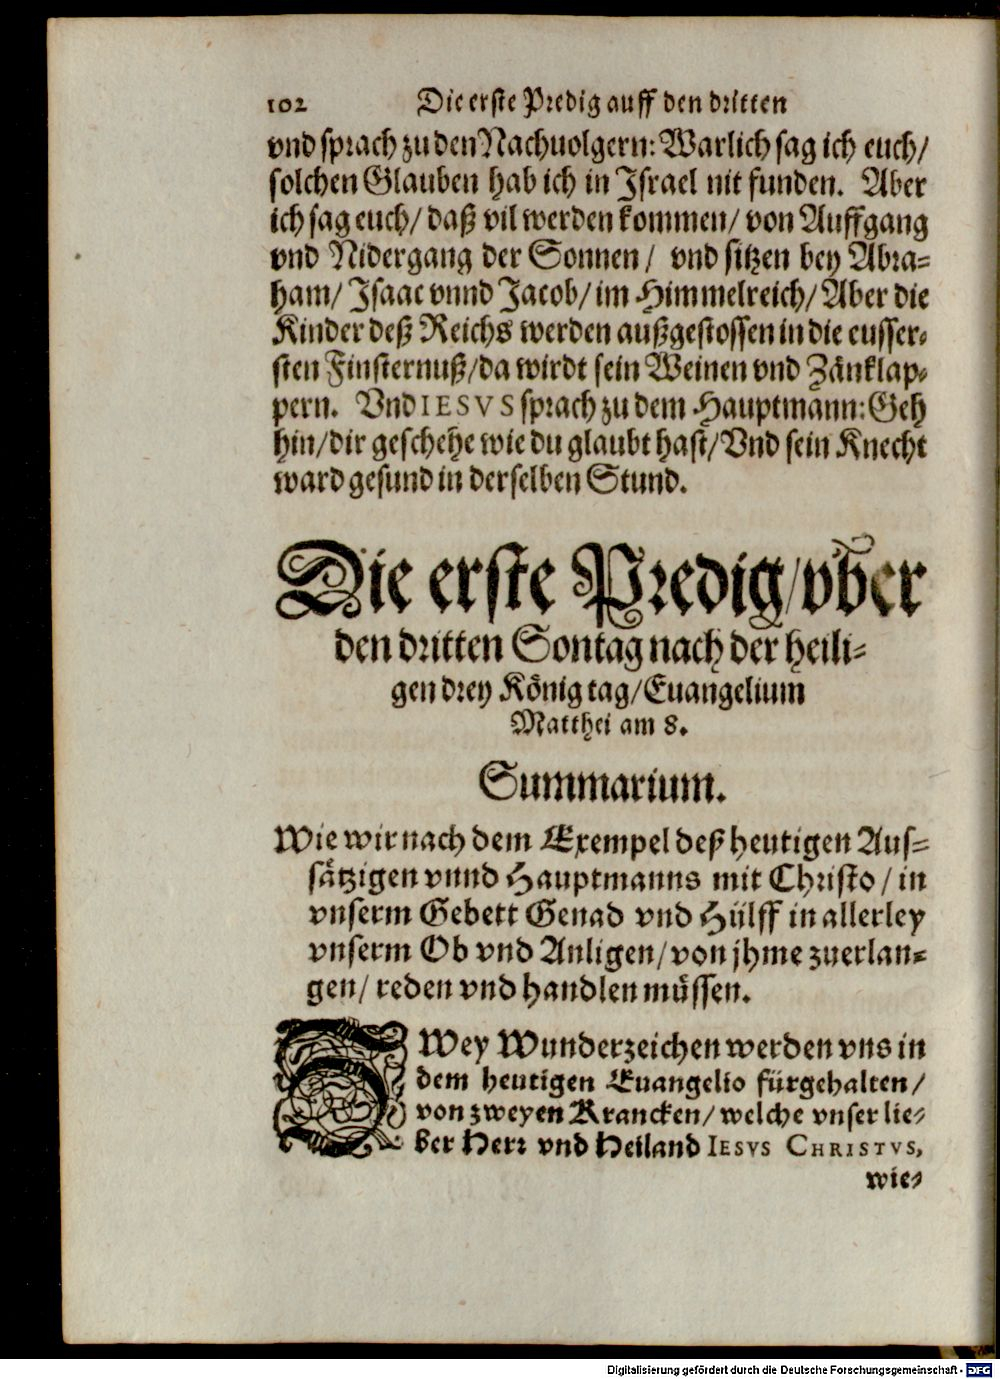 102 Die erste Predig auff den dritten
vnd sprach zu den Nachuolgern: Warlich sag ich euch/
solchen Glauben hab ich in Israel nit funden. Aber
ich sag euch/ daß vil werden kommen/ von Auffgang
vnd Nidergang der Sonnen/ vnd sitzen bey Abra-
ham/ Isaac vnnd Jacob/ im Himmelreich/ Aber die
Kinder deß Reichs werden außgestossen in die eusser-
sten Finsternuß/ da wirdt sein Weinen vnd Zänklap-
pern. Vnd IESVS sprach zu dem Hauptmann: Geh
hin/ dir geschehe wie du glaubt hast/ Vnd sein Knecht
ward gesund in derselben Stund.
Die erste Predig/ vber
den dritten Sontag nach der heili-
gen drey König tag/ Euangelium
Matthei am 8.
Summarium.
Wie wir nach dem Exempel deß heutigen Aus-
sätzigen vnnd Hauptmanns mit Christo/ in
vnserm Gebett Genad vnd Hülff in allerley
vnserm Ob vnd Anligen/ von jhme zuerlan-
gen/ reden vnd handlen müssen.
ZWey Wunderzeichen werden vns in
dem heutigen Euangelio fürgehalten/
von zweyen Krancken/ welche vnser lie-
ber Herr vnd Heiland IESVS CHRISTVS,
wie-
Digitalisierung gefördert durch die Deutsche Forschungsgemeinschaft - DFG